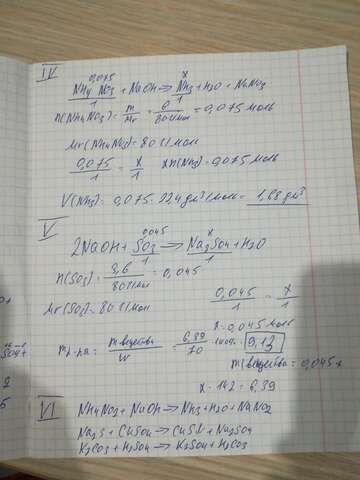 IV
0,075 x
NH4 NO3 + NaOH → NH3 + H2O + NaNO3
1 1
n(NH4NO3) = m/Mr = 6/80 г/моль = 0,075 моль
Mr(NH4NO3) = 80 г/моль
0,075/1 = x/1 x n(NH3) = 0,075 моль
V(NH3) = 0,075 · 22,4 дм³/моль = 1,68 дм³
V
0,045 x
2NaOH + SO3 → Na2SO4 + H2O
1 1
n(SO3) = 3,6/80 г/моль = 0,045
Mr(SO3) = 80 г/моль
0,045/1 = x/1
x = 0,045 моль
m р-ра = m вещества/w = 6,39/70
m вещества = 0,045 x
x · 142 = 6,39
VI
NH4NO2 + NaOH → NH3 + H2O + NaNO2
Na2S + CuSO4 → CuS↓ + Na2SO4
K2CO3 + H2SO4 → K2SO4 + H2CO3